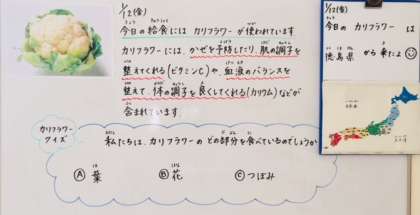 1/12(金)
今日の給食には カリフラワーが使われています
カリフラワーには、かぜを予防したり、肌の調子を
整えてくれる(ビタミンC)や、血液のバランスを
整えて、体の調子を良くしてくれる(カリウム)などが
含まれています
カリフラワー
クイズ
私たちは、カリフラワーの どの部分を食べているのでしょうか
Ⓐ 葉
Ⓑ 花
Ⓒ つぼみ
1/12(金)
今日の カリフラワー は
徳島県 から来たよ